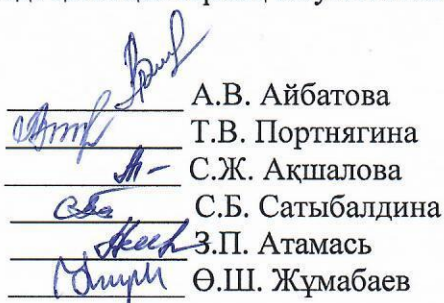 А.В. Айбатова
Т.В. Портнягина
С.Ж. Ақшалова
С.Б. Сатыбалдина
З.П. Атамась
Ө.Ш. Жұмабаев